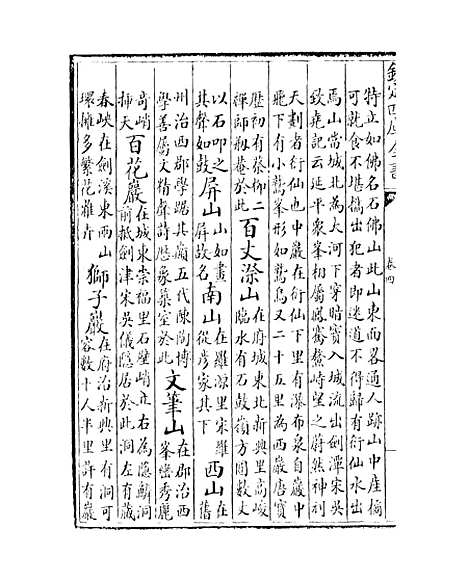 欽定四庫全書
卷四
特立如佛名石佛山此山東面畧通人跡山中産橘
可就食不堪攜出犯者即迷道不得歸有衍仙水出
焉山當城北為大河下穿暗竇入城流出劍潭宋吳
致堯記云延平衆峯相屬鳳鶱鰲峙望之蔚然神刓
天劃者衍仙也中巖在衍仙下里有瀑布泉自巖中
飛下有小鷲峯形如鷲鳥又二十五里為西巖唐寶
歴初有蔡柳二禪師剏菴於此 百丈漈山 在府城東北新興里高峻臨水有石鼓嶺方圓數丈
以石叩之其聲如鼓 屏山 山如畫屏故名 南山 在羅源里宋羅從彦家其下 西山 在舊
州治西郡學踞其巔五代陳陶博學善屬文精聲詩厯象築室於此 文筆山 在郡治西峯巒秀麗
奇峭挿天 百花巖 在城東崇福里石壁峭立右為隱鱗洞前抵劍津宋吳儀隱居於此洞左有藏
春峽在劍溪東西山環擁多繁花雜卉 獅子巖 在府治新興里有洞可容數十人半里許有巖